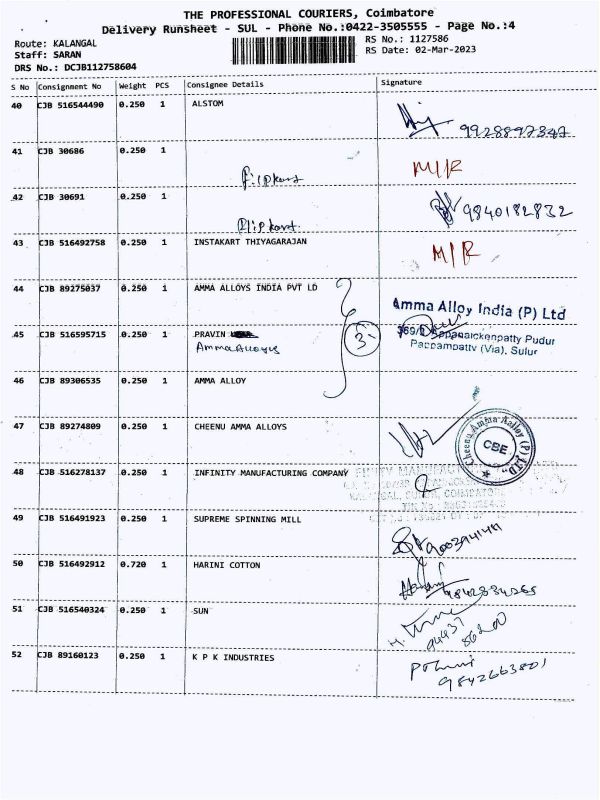 THE PROFESSIONAL COURIERS, Coimbatore
Delivery Runsheet - SUL - Phone No.:0422-3505555 - Page No.:4
Route: KALANGAL
Staff: SARAN
DRS No.: DCJB112758604
RS No.: 1127586
RS Date: 02-Mar-2023
S No Consignment No Weight PCS Consignee Details Signature
40 CJB 516544490 0.250 1 ALSTOM
9928897347
41 CJB 30686 0.250 1
flipkart M/R
42 CJB 30691 0.250 1
9840182832
Flipkart
43 CJB 516492758 0.250 1 INSTAKART THIYAGARAJAN
M/R
44 CJB 89275037 0.250 1 AMMA ALLOYS INDIA PVT LD
Amma Alloy India (P) Ltd
45 CJB 516595715 0.250 1 PRAVIN
369/2 Appanaickenpatty Pudur
Amma Alloyis 3
Pappampatty (Via), Sulur
46 CJB 89306535 0.250 1 AMMA ALLOY
47 CJB 89274809 0.250 1 CHEENU AMMA ALLOYS
Cheenu Amma Aalloy (P) LTD.
CBE
48 CJB 516278137 0.250 1 INFINITY MANUFACTURING COMPANY
KALANGAL, SULUR, COIMBATORE
49 CJB 516491923 0.250 1 SUPREME SPINNING MILL
50 CJB 516492912 0.720 1 HARINI COTTON
9842884265
51 CJB 516540324 0.250 1 SUN
94437
86200
52 CJB 89160123 0.250 1 K P K INDUSTRIES
9842663801